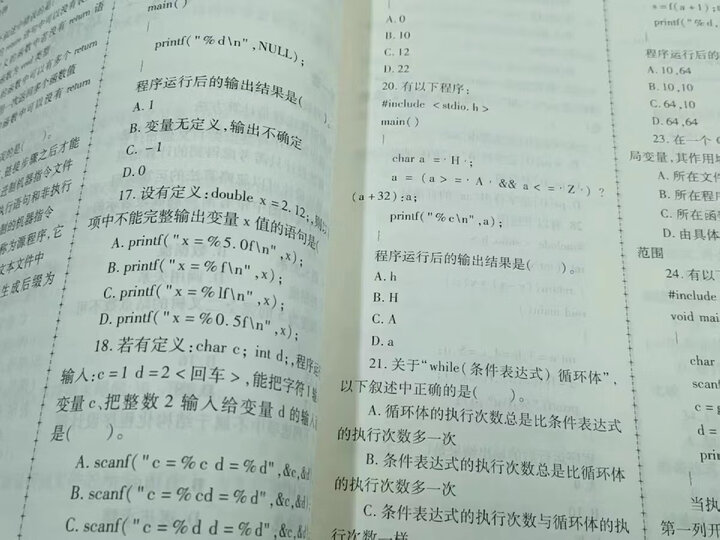 return 语
return
多个 return
main()
{
printf("%d\n",NULL);
}
程序运行后的输出结果是(    )。
A. 1
B. 变量无定义,输出不确定
C. -1
D. 0
17. 设有定义:double x=2.12;,
项中不能完整输出变量 x 值的语句是(
A. printf("x=%5.0f\n",x);
B. printf("x=%f\n",x);
C. printf("x=%lf\n",x);
D. printf("x=%0.5f\n",x);
18. 若有定义:char c; int d;,程序运
输入:c=1 d=2<回车>,能把字符1输
变量 c,把整数 2 输入给变量 d 的输入
是(    )。
A. scanf("c=%c d=%d",&c,&d
B. scanf("c=%cd=%d",&c,&d
C. scanf("c=%d d=%d",&c,&d
A. 0
B. 10
C. 12
D. 22
20. 有以下程序:
#include <stdio.h>
main()
{
char a=·H·;
a=(a>=·A·&&a<=·Z·)?
(a+32):a;
printf("%c\n",a);
}
程序运行后的输出结果是(    )。
A. h
B. H
C. A
D. a
21. 关于“while(条件表达式) 循环体”,
以下叙述中正确的是(    )。
A. 循环体的执行次数总是比条件表达式
的执行次数多一次
B. 条件表达式的执行次数总是比循环体
的执行次数多一次
C. 条件表达式的执行次数与循环体的执
行次数一样
s=f(a+1);
printf("%d
程序运行后的
A. 10,64
B. 10,10
C. 64,10
D. 64,64
23. 在一个 C
局变量,其作用域
A. 所在文件
B. 所在程序
C. 所在函
D. 由具体
范围
24. 有以
#include
void mai
{
char
scanf
c=
d=
prin
}
当执
第一列开